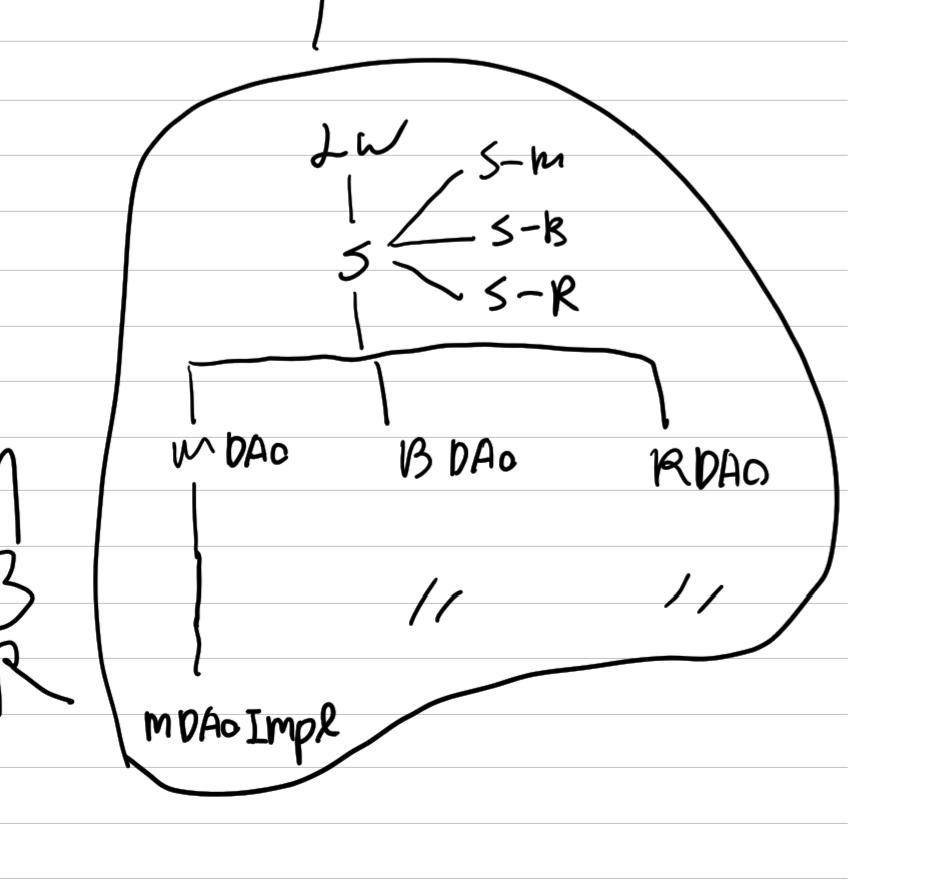 LW
S-m
S-B
S
S-R
mDAO BDAO RDAO
B
R
〃 〃
mDAOImpl